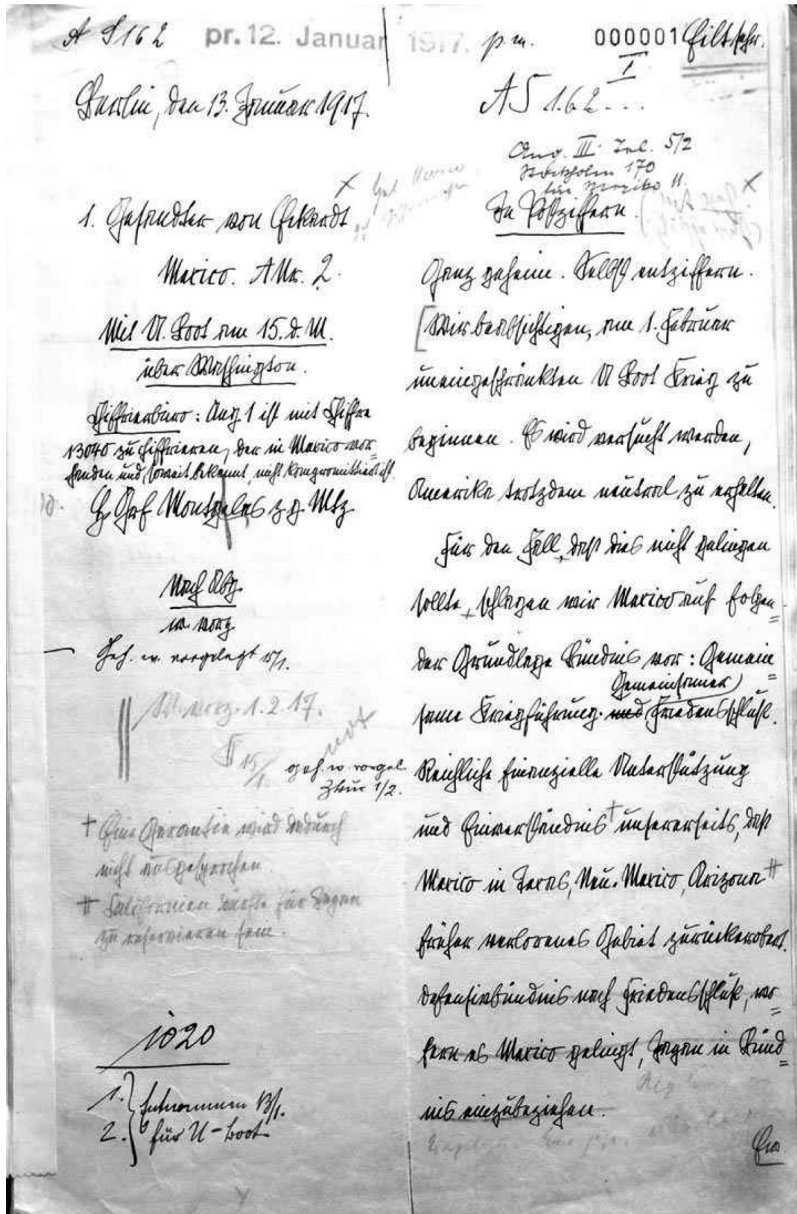 A S 162 pr. 12. Januar 1917. p.m. 000001 Eilt sehr.
I
Berlin, den 13. Januar 1917.
AS 162...
Ang. III. Tel. 5/2
Stockholm 170
für Mexiko 11.
1. Gesandter von Eckardt
Mexico. A No. 2.
Mit U. Boot am 15. d. M.
über Washington.
Chiffrierbüro: Ang 1 ist mit Chiffre
13040 zu chiffrieren, der in Mexico vor=
handen und soweit bekannt, nicht kompromittiert ist.
H. Grf Montgelas z. g. Mtz
Nach Abg.
w. vorg
Geh. w. vorgelegt 15/1.
W. vorg. 1.2.17.
15/1.
geh. w. vorgel.
1/2.
† Eine Garantie wird dadurch
nicht ausgesprochen.
‡ Californien dürfte für Japan
zu reservieren sein.
1020
1.
2.
Entnommen 13/1.
für U-Boot
In Postziffern.
Ganz geheim. Selbst entziffern.
[Wir beabsichtigen, am 1. Februar
uneingeschränkten U Boot Krieg zu
beginnen. Es wird versucht werden,
Amerika trotzdem neutral zu erhalten.
Für den Fall, daß dies nicht gelingen
sollte, schlagen wir Mexico auf folgen=
der Grundlage Bündnis vor: Gemein=
Gemeinsamer
same Kriegführung. und Friedensschluß.
Reichliche finanzielle Unterstützung
und Einverständnis † unsererseits, daß
Mexico in Texas, Neu-Mexico, Arizona ‡
früher verlorenes Gebiet zurückerobert.
Defensivbündnis nach Friedensschluß, wo=
fern es Mexico gelingt, Japan in Bünd=
nis einzubeziehen.